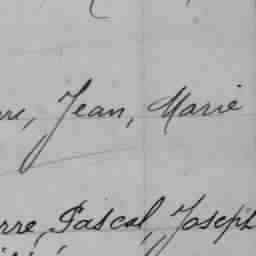 re, Jean, Marie
rre, Pascal, Joseph